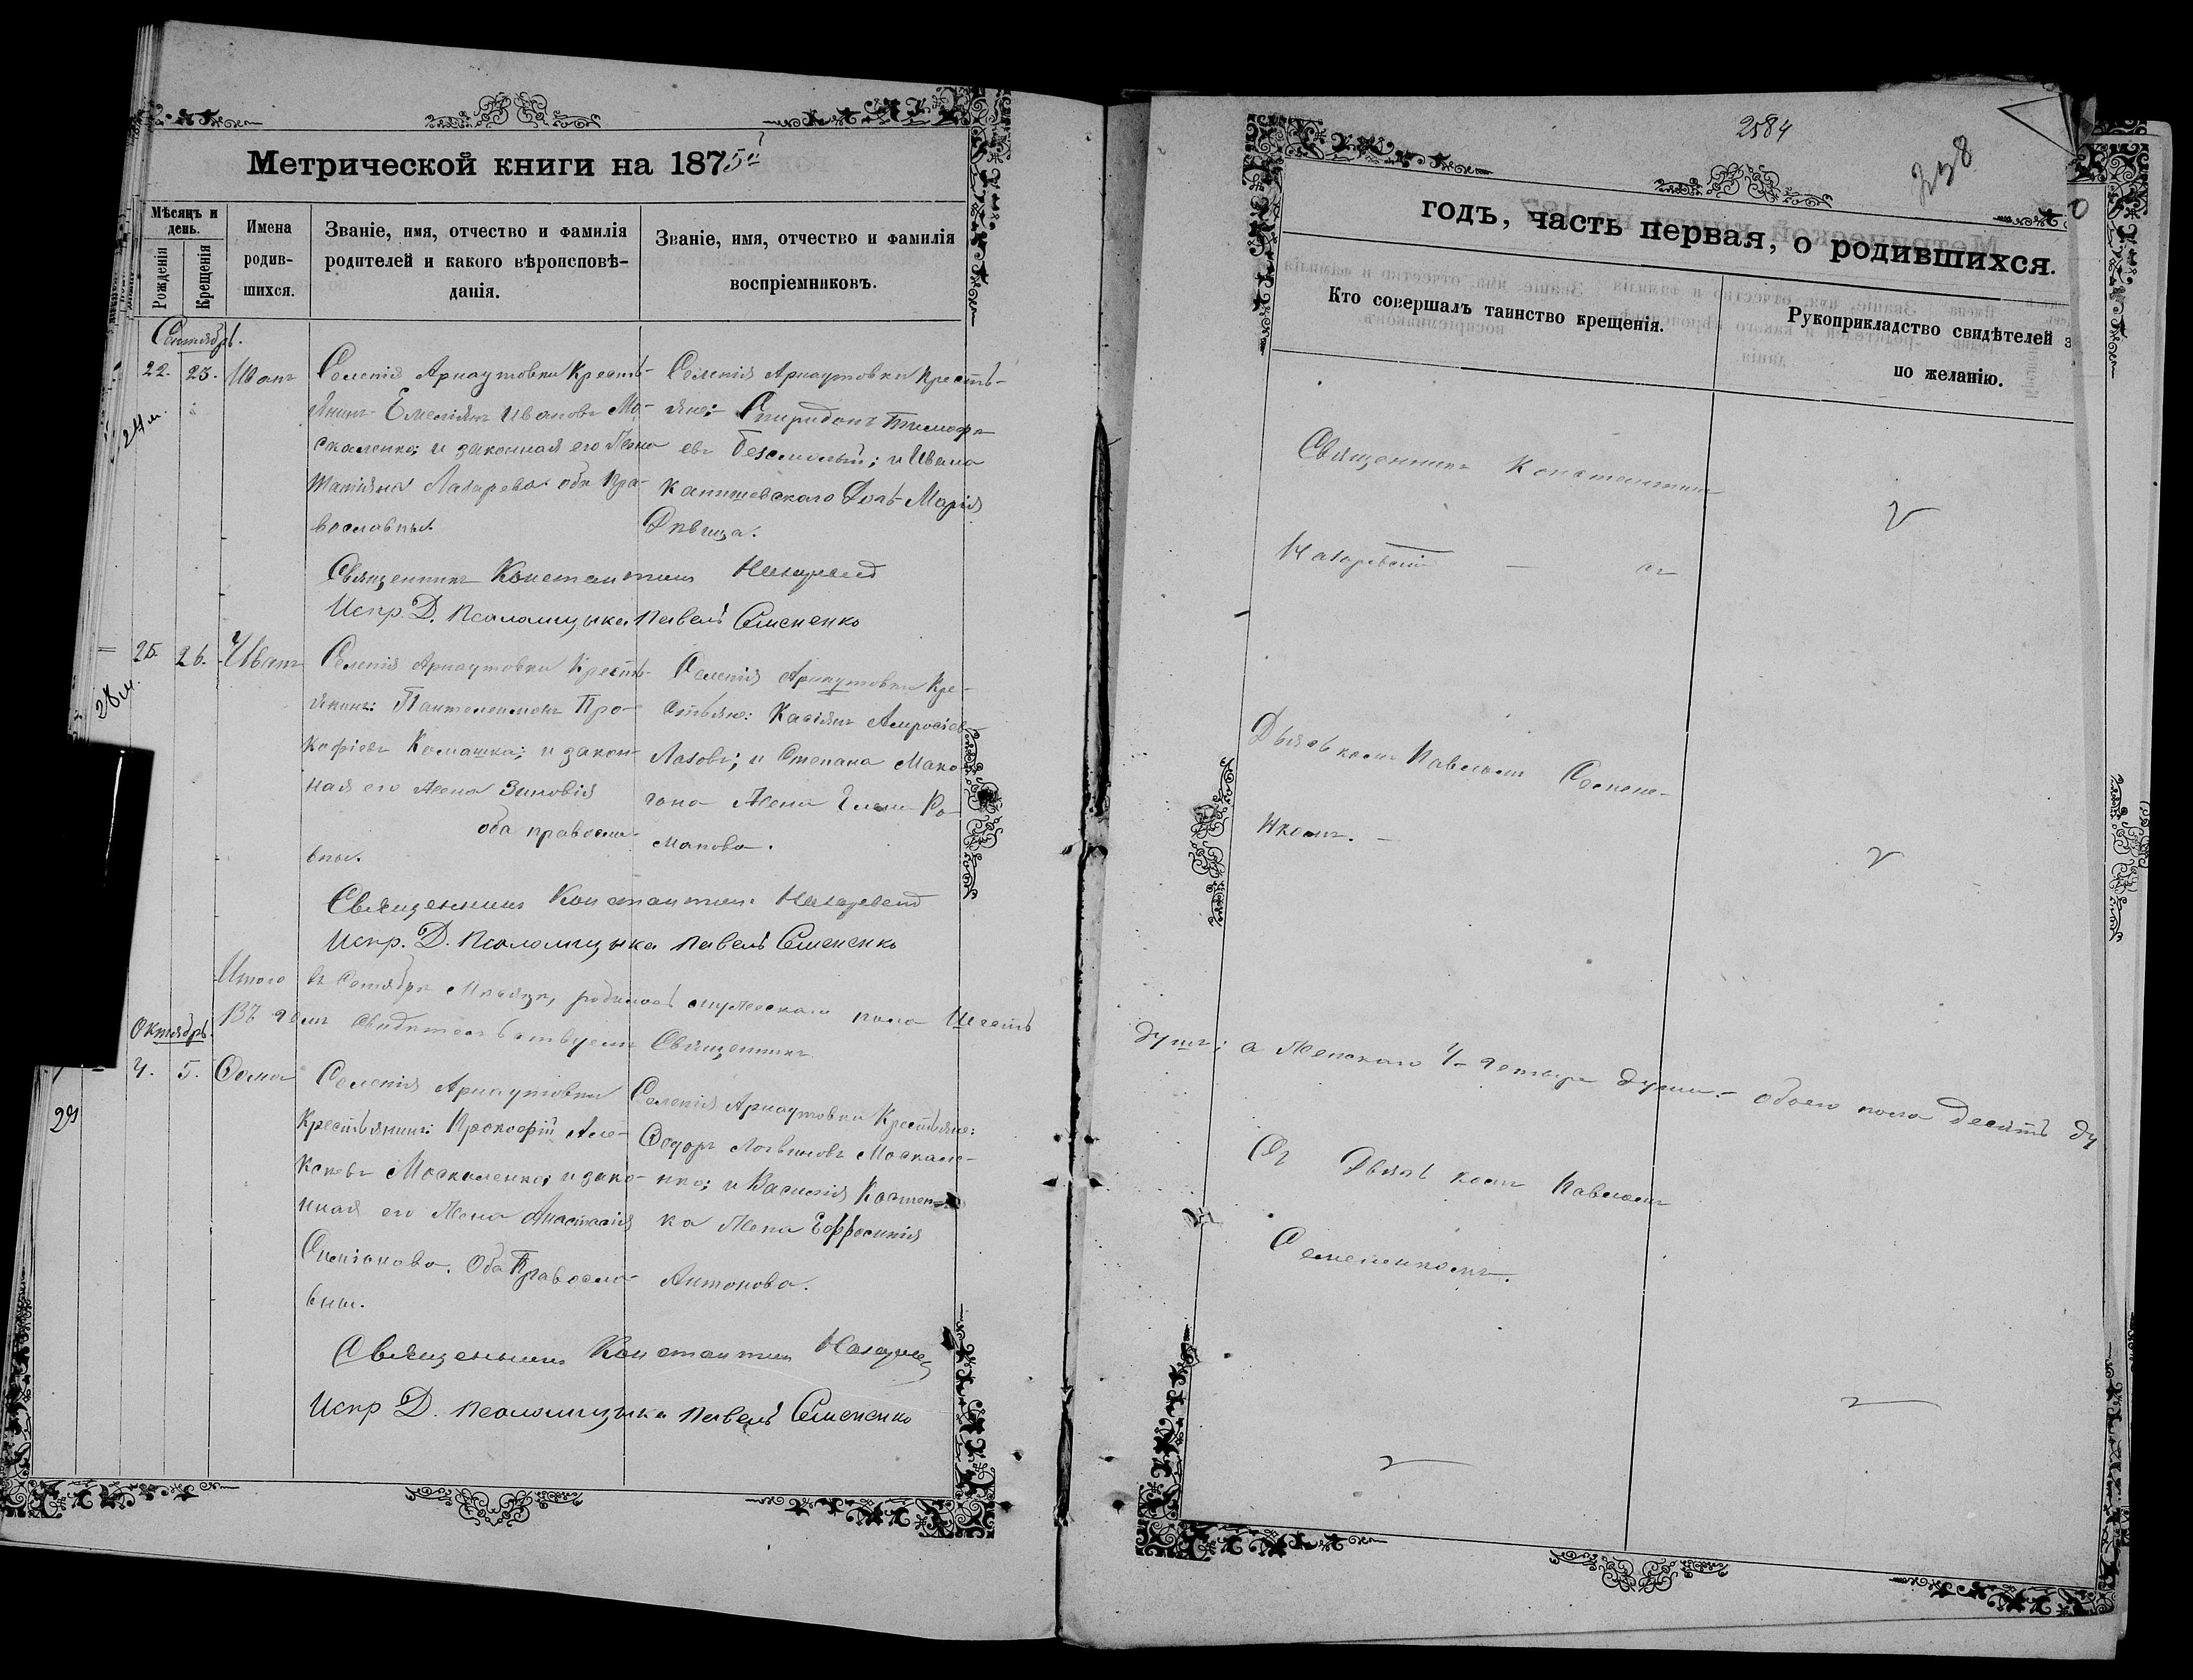 Метрической книги на 1875й
Мѣсяцъ и день.
Рожденія
Крещенія
Имена родив-
шихся.
Званіе, имя, отчество и фамилія
родителей и какого вѣроисповѣ-
данія.
Званіе, имя, отчество и фамилія
воспріемниковъ.
Сентябрь.
22. 23. Иванъ
24 м.
Селенія Арнаутовки Кресть-
янинъ Емеліянъ Ивановъ Мо-
скаленко; и законная его Жена
Татіяна Лазарева оба Пра-
вославные.
Селенія Арнаутовки Кресть-
яне: Спиридонъ Тимофе
евъ; и Ивана
Дочь Марія
Дѣвица.
Священникъ Константинъ Назаревскій
Испр. Д. Псаломщыка Павелъ Семененко
25. 26. Иванъ
28 м.
Селенія Арнаутовки Кресть-
янинъ: Пантелеимонъ Про-
кофіевъ Комашка; и закон-
ная его Жена Зиновія
оба правосла-
вные.
Селенія Арнаутовки Кре-
стьяне: Касіянъ Амвросіевъ
Лазовъ; и Степана Мако-
гона Жена Елена Ро-
манова.
Священникъ Константинъ Назаревскій
Испр. Д. Псаломщыка Павелъ Семененко
Итого въ Сентябрѣ Мѣсяцѣ, родилось мужескаго пола Шесть
душъ; а Женскаго четыре души.- обоего пола десять ду
Въ чемъ свидѣтельствуемъ Священникъ
Октябрь.
4. 5. Фома
29
Селенія Арнаутовки
Крестьянинъ: Прокофій Але-
ксѣевъ Москаленко; и зако-
нная его Жена Анастасія
Симіонова. Оба Правосла-
вные.
Селенія Арнаутовки Крестьяне:
Федоръ Логвиновъ Москале-
нко; и Василія Костен-
ка Жена Евфросинія
Антонова.
Священникъ Константинъ Назарев
Испр Д. Псаломщыка Павелъ Семененко
2584
238
годъ, часть первая, о родившихся.
Кто совершалъ таинство крещенія.
Рукоприкладство свидѣтелей з
по желанію.
Священникъ Константинъ
Назаревскій — съ
Дьячкомъ Павломъ Семене-
нкомъ. —
Съ Дьячкомъ Павломъ
Семененкомъ.